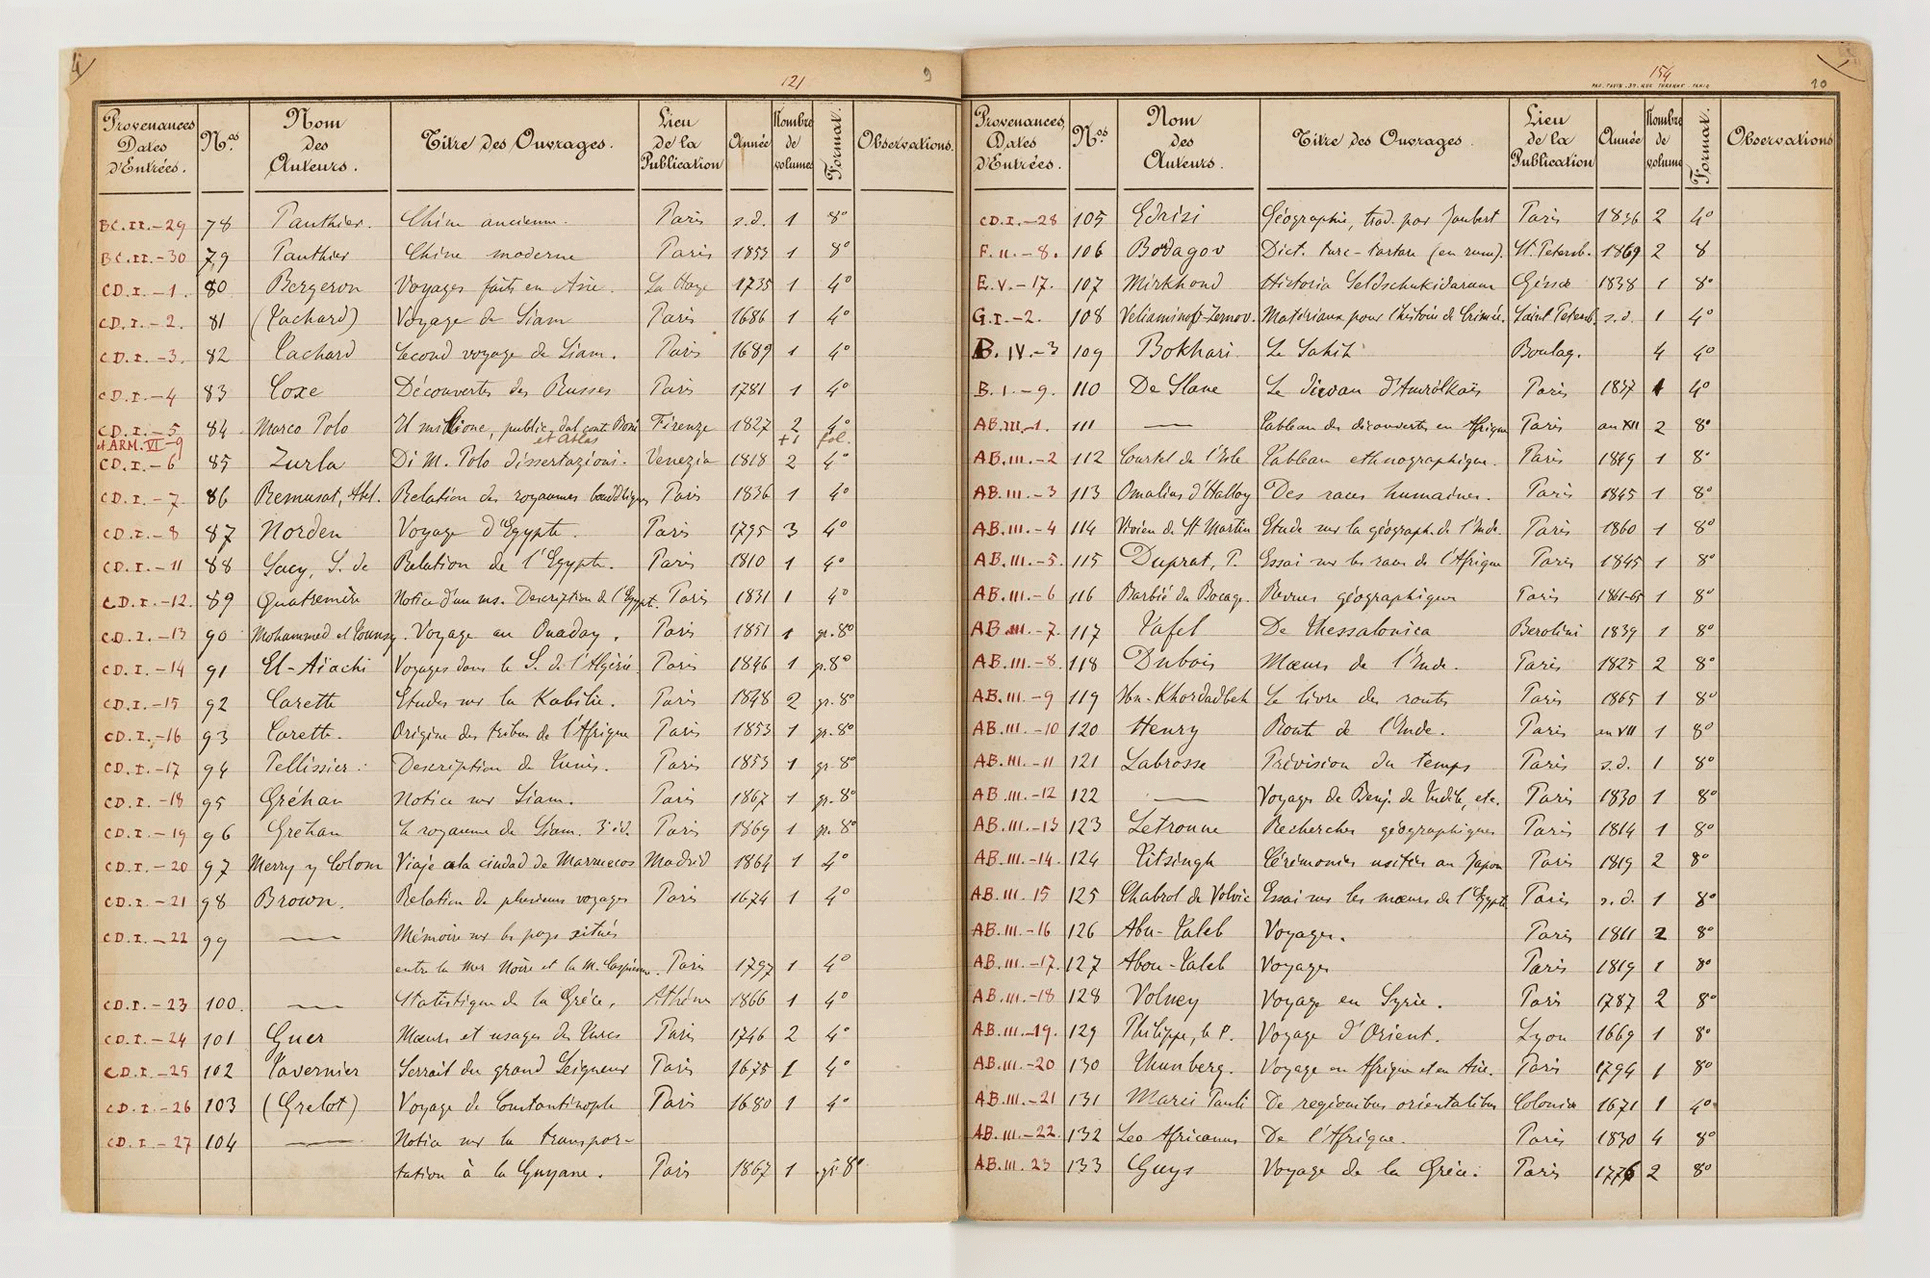 4
121
9
Provenances Dates d'Entrées.
N.os
Nom des Auteurs.
Titre des Ouvrages.
Lieu de la Publication
Année
Nombre de volumes
Format.
Observations.
BC.II.-29 78 Pauthier. Chine ancienne. Paris s.d. 1 8°
BC.II.-30 79 Pauthier Chine moderne Paris 1853 1 8°
CD.I.-1. 80 Bergeron Voyages faits en Asie. La Haye 1735 1 4°
CD.I.-2. 81 (Tachard) Voyage de Siam Paris 1686 1 4°
CD.I.-3. 82 Tachard Second voyage de Siam. Paris 1689 1 4°
CD.I.-4 83 Coxe Découvertes des Russes Paris 1781 1 4°
CD.I.-5 84 Marco Polo Il milione, public. dal cont. Boni Firenze 1827 2 4°
et ARM.VI-9 et atlas +1 fol.
CD.I.-6 85 Zurla Di M. Polo dissertazioni. Venezia 1818 2 4°
CD.I.-7. 86 Remusat, Abel. Relation des royaumes bouddhiques Paris 1836 1 4°
CD.I.-8 87 Norden Voyage d'Egypte. Paris 1795 3 4°
CD.I.-11 88 Sacy, S. de Relation de l'Egypte. Paris 1810 1 4°
CD.I.-12. 89 Quatremère Notice d'un ms. Description de l'Egypt. Paris 1831 1 4°
CD.I.-13 90 Mohammed el Tounsy. Voyage au Ouaday. Paris 1851 1 gr. 8°
CD.I.-14 91 El-Aïachi Voyages dans le S. de l'Algérie Paris 1846 1 gr. 8°
CD.I.-15 92 Carette Etudes sur la Kabilie. Paris 1848 2 gr. 8°
CD.I.-16 93 Carette. Origine des tribus de l'Afrique Paris 1853 1 gr. 8°
CD.I.-17 94 Pellissier. Description de Tunis. Paris 1853 1 gr 8°
CD.I.-18 95 Gréhan Notice sur Siam. Paris 1867 1 gr. 8°
CD.I.-19 96 Gréhan Le royaume de Siam. 3e éd. Paris 1869 1 gr. 8°
CD.I.-20 97 Merry y Colom Viaje a la ciudad de Marruecos Madrid 1864 1 4°
CD.I.-21 98 Brown. Relation de plusieurs voyages Paris 1674 1 4°
CD.I.-22 99 — Mémoire sur les pays situés
entre la mer Noire et la m. Caspienne. Paris 1797 1 4°
CD.I.-23 100. — Statistique de la Grèce, Athènes 1866 1 4°
CD.I.-24 101 Guer Mœurs et usages des Turcs Paris 1746 2 4°
CD.I.-25 102 Tavernier Serrail du grand Seigneur Paris 1675 1 4°
CD.I.-26 103 (Grelot) Voyage de Constantinople Paris 1680 1 4°
CD.I.-27 104 — Notice sur la transpor-
tation à la Guyane. Paris 1867 1 gr. 8°
154
PAP. TAVIN. 37. RUE TURENNE. PARIS
10
Provenances Dates d'Entrées.
N.os
Nom des Auteurs.
Titre des Ouvrages.
Lieu de la Publication
Année
Nombre de volumes
Format.
Observations
CD.I.-28 105 Edrisi Géographie, trad. par Jaubert Paris 1836 2 4°
F.II.-8. 106 Bodagov Dict. turc-tartare (en russe). St. Petersb. 1869 2 8
E.V.-17. 107 Mirkhond Historia Seldschukidarum Gissæ 1838 1 8°
G.I.-2. 108 Veliaminof-Zernov. Matériaux pour l'histoire de Crimée. Saint Petersb. s.d. 1 4°
B.IV.-3 109 Bokhari. Le Sahih Boulaq. 4 4°
B.I.-9. 110 De Slane Le divan d'Amrolkaïs Paris 1837 1 4°
AB.III.-1. 111 — Tableau des découvertes en Afrique Paris an XII 2 8°
AB.III.-2 112 Courtet de l'Isle Tableau ethnographique. Paris 1849 1 8°
AB.III.-3 113 Omalius d'Halloy Des races humaines. Paris 1845 1 8°
AB.III.-4 114 Vivien de St Martin Etude sur la géograph. de l'Inde. Paris 1860 1 8°
AB.III.-5. 115 Duprat, P. Essai sur les races de l'Afrique Paris 1845 1 8°
AB.III.-6 116 Barbié du Bocage. Revues géographiques Paris 1861-65 1 8°
AB.III.-7. 117 Tafel De Thessalonica Berolini 1839 1 8°
AB.III.-8. 118 Dubois Mœurs de l'Inde. Paris 1825 2 8°
AB.III.-9 119 Ibn-Khordadbeh Le livre des routes Paris 1865 1 8°
AB.III.-10 120 Henry Route de l'Inde. Paris an VII 1 8°
AB.III.-11 121 Labrosse Prévision du temps Paris s.d. 1 8°
AB.III.-12 122 — Voyages de Benj. de Tudèle, etc. Paris 1830 1 8°
AB.III.-13 123 Letronne Recherches géographiques Paris 1814 1 8°
AB.III.-14. 124 Titsingh Cérémonies usitées au Japon Paris 1819 2 8°
AB.III.15 125 Chabrol de Volvic Essai sur les mœurs de l'Egypte Paris s.d. 1 8°
AB.III.-16 126 Abu-Taleb Voyages. Paris 1811 2 8°
AB.III.-17. 127 Abou-Taleb Voyages Paris 1819 1 8°
AB.III.-18 128 Volney Voyage en Syrie. Paris 1787 2 8°
AB.III.-19. 129 Philippe, le P. Voyage d'Orient. Lyon 1669 1 8°
AB.III.-20 130 Thunberg. Voyage en Afrique et en Asie. Paris 1794 1 8°
AB.III.-21 131 Marci Pauli De regionibus orientalibus Coloniæ 1671 1 4°
AB.III.-22. 132 Leo Africanus De l'Afrique. Paris 1830 4 8°
AB.III.23 133 Guys Voyage de la Grèce. Paris 1776 2 8°